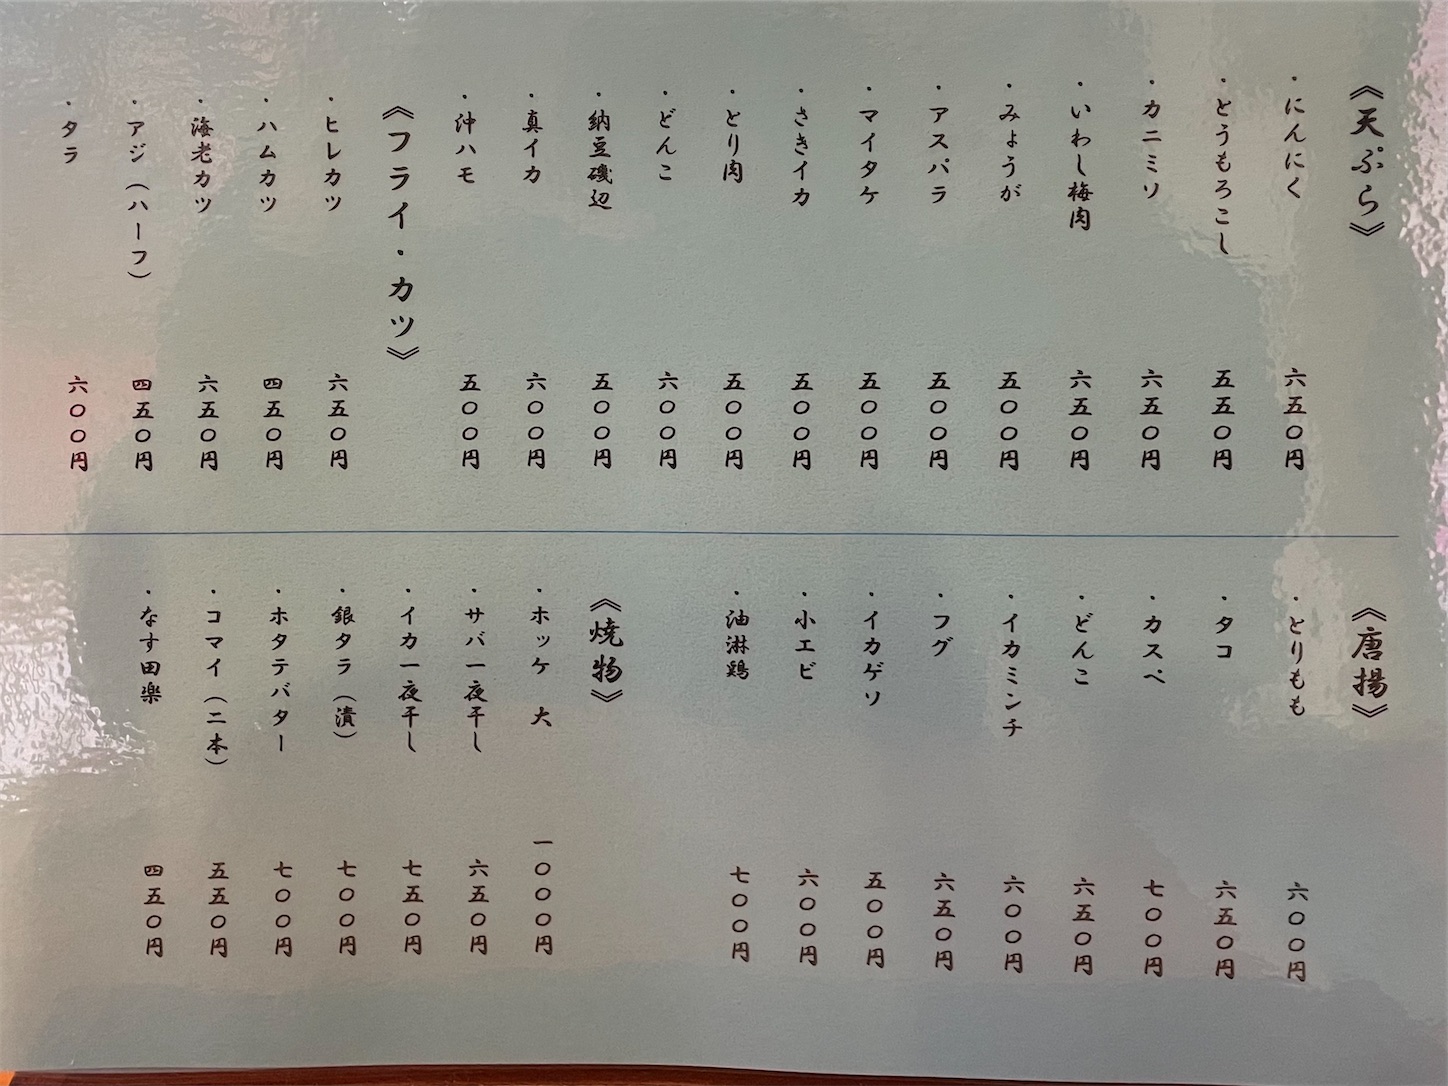 《天ぷら》
・にんにく 六五〇円
・とうもろこし 五五〇円
・カニミソ 六五〇円
・いわし梅肉 六五〇円
・みょうが 五〇〇円
・アスパラ 五〇〇円
・マイタケ 五〇〇円
・さきイカ 五〇〇円
・とり肉 五〇〇円
・どんこ 六〇〇円
・納豆磯辺 五〇〇円
・真イカ 六〇〇円
・沖ハモ 五〇〇円
《フライ・カツ》
・ヒレカツ 六五〇円
・ハムカツ 四五〇円
・海老カツ 六五〇円
・アジ（ハーフ） 四五〇円
・タラ 六〇〇円
《唐揚》
・とりもも 六〇〇円
・タコ 六五〇円
・カスペ 七〇〇円
・どんこ 六五〇円
・イカミンチ 六〇〇円
・フグ 六五〇円
・イカゲソ 五〇〇円
・小エビ 六〇〇円
・油淋鶏 七〇〇円
《焼物》
・ホッケ 大 一〇〇〇円
・サバ一夜干し 六五〇円
・イカ一夜干し 七五〇円
・銀タラ（漬） 七〇〇円
・ホタテバター 七〇〇円
・コマイ（二本） 五五〇円
・なす田楽 四五〇円